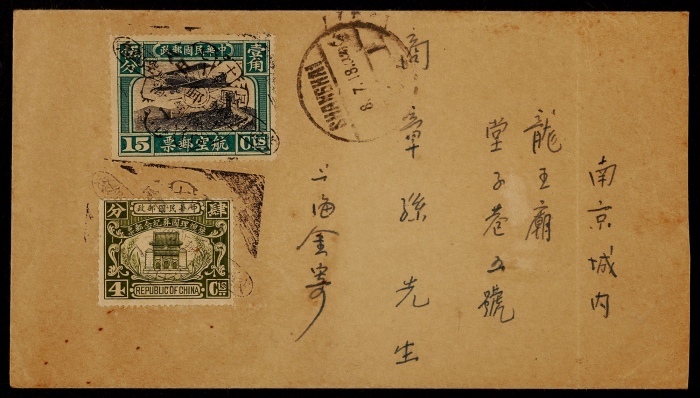 南京城内
龍王廟
堂子巷五號
商章孫先生
上海金寄
SHANGHAI
8.7.18
中華民國郵政
壹角
伍分
15
航空郵票
CTS
中華民國郵政
分
肆
4
REPUBLIC OF CHINA
CTS